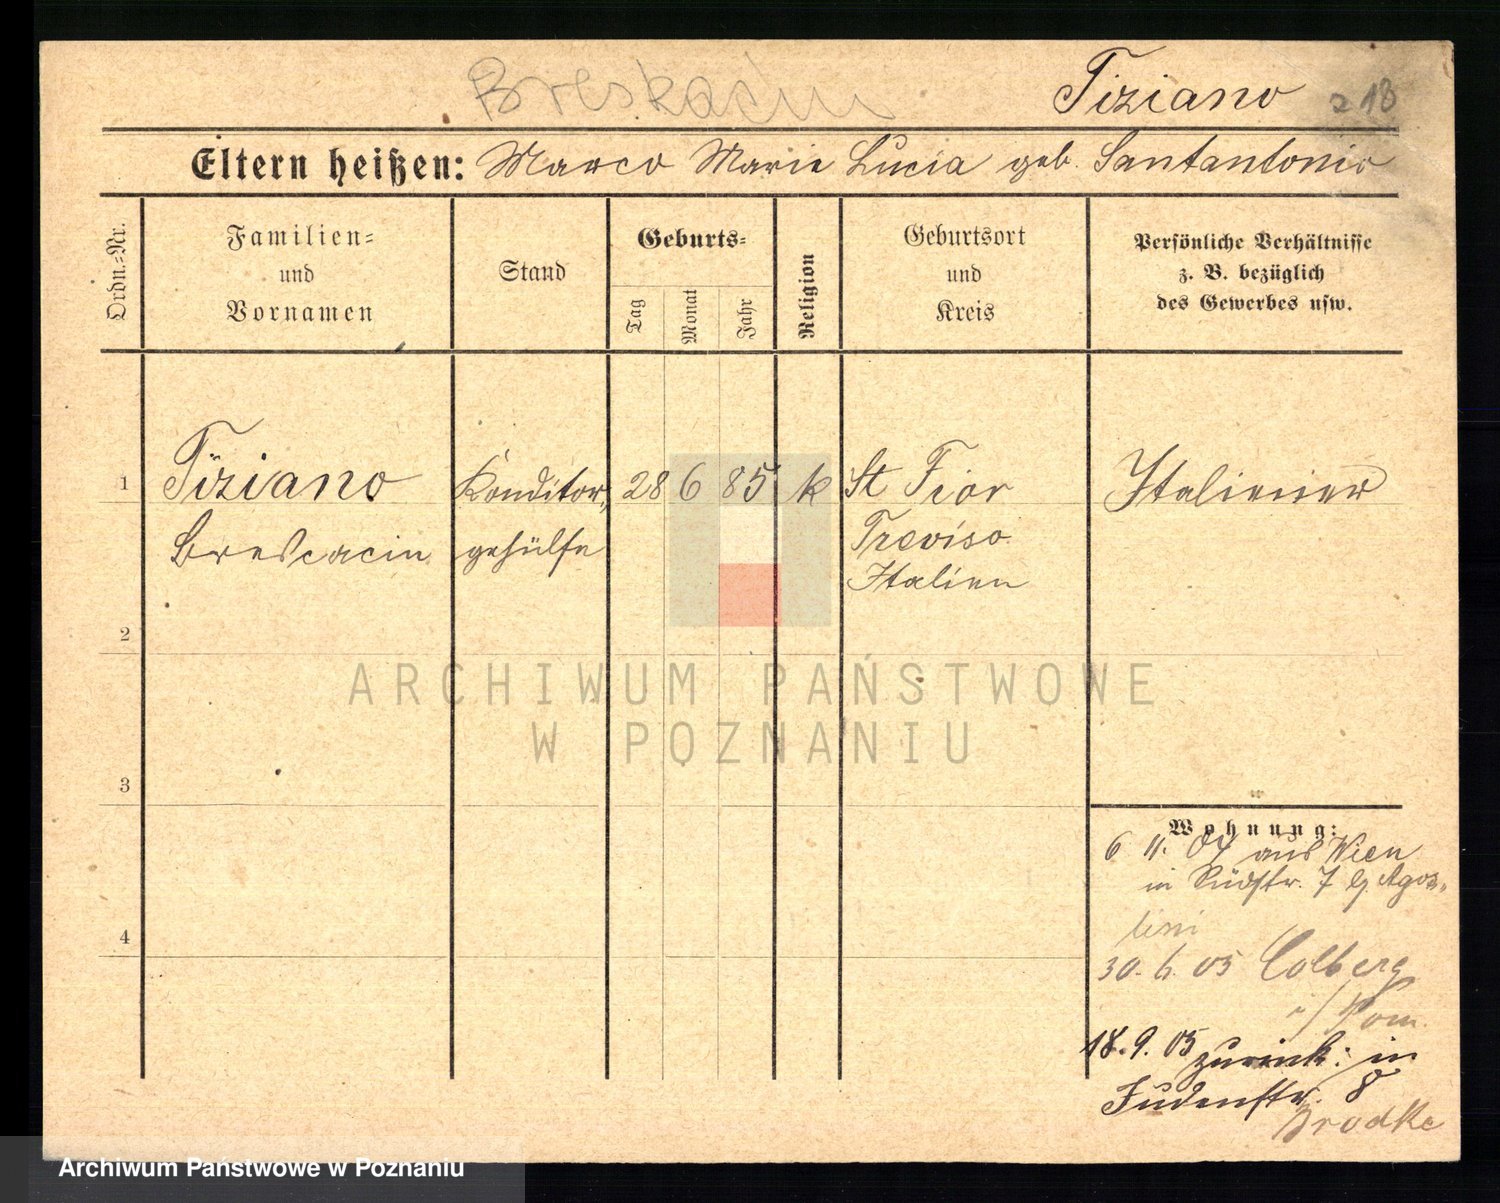 Breskacin
Tiziano 218
Eltern heißen: Marco Marie Lucia geb. Santantonio
Ordn.-Nr.
Familien-
und
Vornamen
Stand
Geburts-
Tag
Monat
Jahr
Religion
Geburtsort
und
Kreis
Persönliche Verhältnisse
z. B. bezüglich
des Gewerbes usw.
1 Tiziano Konditor- 28 6 85 k St Fior Italiener
Brescacin gehülfe Treviso
Italien
2
3
4
Wohnung:
6 11. 04 aus Wien
in Südstr. 7 b/ Agos-
tini
30. 6. 05 Colberg
i/ Pom.
18. 9. 05 zurück: in
Judenstr. 8
Brodke
ARCHIWUM PAŃSTWOWE
W POZNANIU
Archiwum Państwowe w Poznaniu